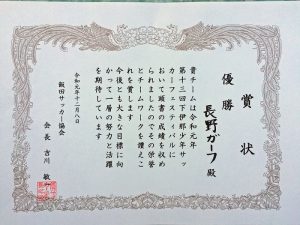 賞状
優勝
長野ガーフ殿
貴チームは令和元年
第十三回下伊那少年サッ
カーフェスティバルに
おいて頭書の成績を収め
られましたのでその栄誉
とチームワークを讃えこ
れを賞します
今後とも大きな目標に向
かって一層の努力と活躍
を期待しています
令和元年十二月八日
飯田サッカー協会
会長 吉川 敏